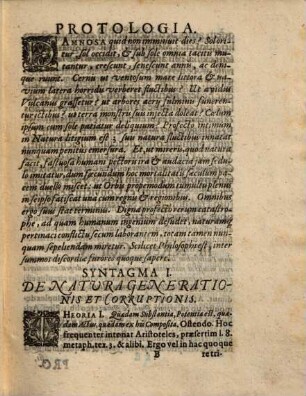 PROTOLOGIA.
DAMNOSA quid non imminuit dies? Sol ori-
tur, sol occidit, & sub sole omnia tacitè mu-
tantur, crescunt, senescunt annis, ac deni-
que ruunt. Cernis ut ventosum mare littora & na-
vium latera horridis verberet fluctibus? Ut avidus
Vulcanus grassetur? ut arbores aëris fulminis
ictibus? ut terra monstris suis injecta doleat? Cœlum
ipsum cum sole patiatur deliquium? Profectò intimum
in Naturâ dissidium est, suis natura fluctibus innatat
nunquam penitus emersura. Et, ut miseris, quod natura
facit, fastuosa humani pectoris ira & audacia jam sedu-
lò imitatur, dum sæcundum hoc mortalitatis sæculum pa-
cem duelli miscet: ut Orbis propemodum tumultus pleni
in seipso fatiscat unà cum regnis & regionibus. Omnibus
ergo suus stat terminus. Digna profectò rerum catastro-
phe, ad quam humanum ingenium desudet, naturamq;
pertinaci conflictu secum laborantem, totam tamen nus-
quam sepeliendam miretur. Scilicet Philosophi est, inter
summos discordiæ furores quoque sapere.
SYNTAGMA I.
DE NATURA GENERATIO-
NIS ET CORRUPTIONIS.
THEORIA I. Quædam Substantia, Potentia est, quæ-
dam Actus, quædam ex his Composita. Ostendo. Hoc
frequenter intonat Aristoteles, præsertim l. 8.
metaph. tex. 3. & alibi. Ergo vel in hac quoque
B
re tri-